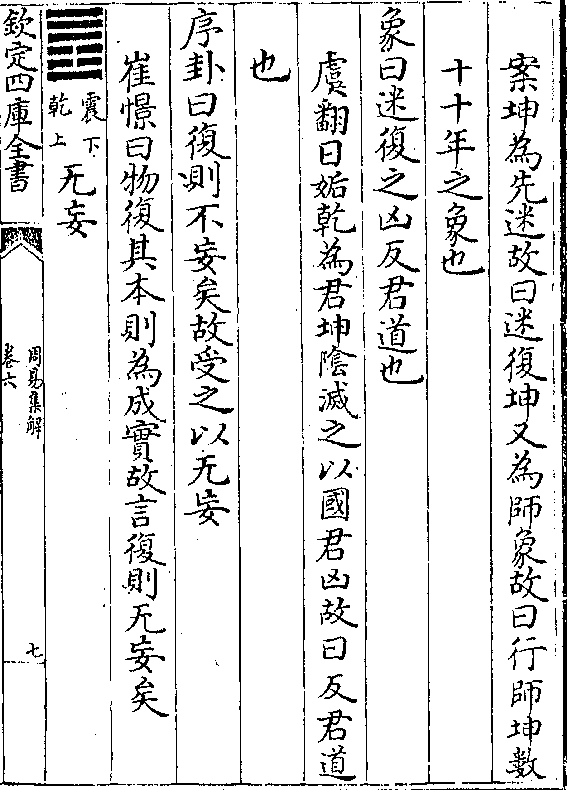 案坤為先迷故曰迷復坤又為師象故曰行師坤數
十十年之象也
象曰迷復之凶反君道也
虞翻曰姤乾為君坤陰滅之以國君凶故曰反君道
也
序卦曰復則不妄矣故受之以无妄
崔憬曰物復其本則為成實故言復則无妄矣
震下
乾上
无妄
欽定四庫全書
周易集解
卷六
七